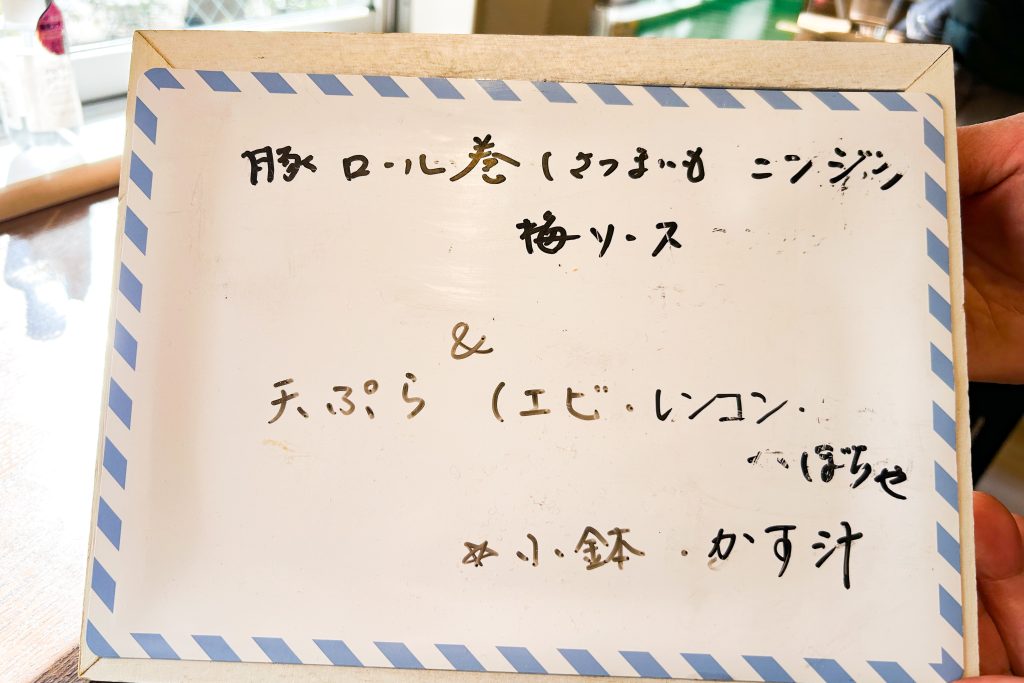 豚ロール巻(さつまいも ニンジン
梅ソース
&
天ぷら (エビ・レンコン・
ぼちゃ
☆小鉢・かす汁